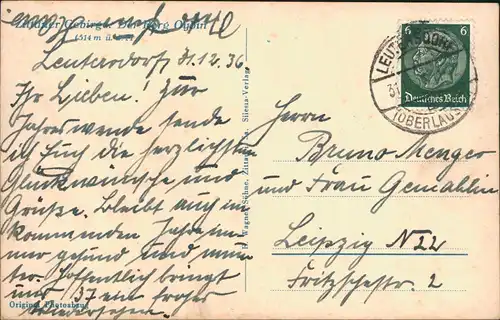 Zittauer Gebirge. Der Berg Oybin
(514 m ü.
Leutersdorf, 31.12.36.
Ihr Lieben! Zur
Jahreswende sende
ich Euch die herzlichsten
Glückwünsche und
Grüße. Bleibt auch im
kommenden Jahre
nur gesund und mun-
ter. Hoffentlich bringt
uns 37 ein frohes
Wiedersehen.
Original Photochrom
R. Wagner Söhne, Zittau, Silesia-Verlag
6 6
Deutsches Reich
LEUTERSDORF
31.
(OBERLAUS
Herrn
Bruno Menger
und Frau Gemahlin
Leipzig N 22
Fritzschestr. 2